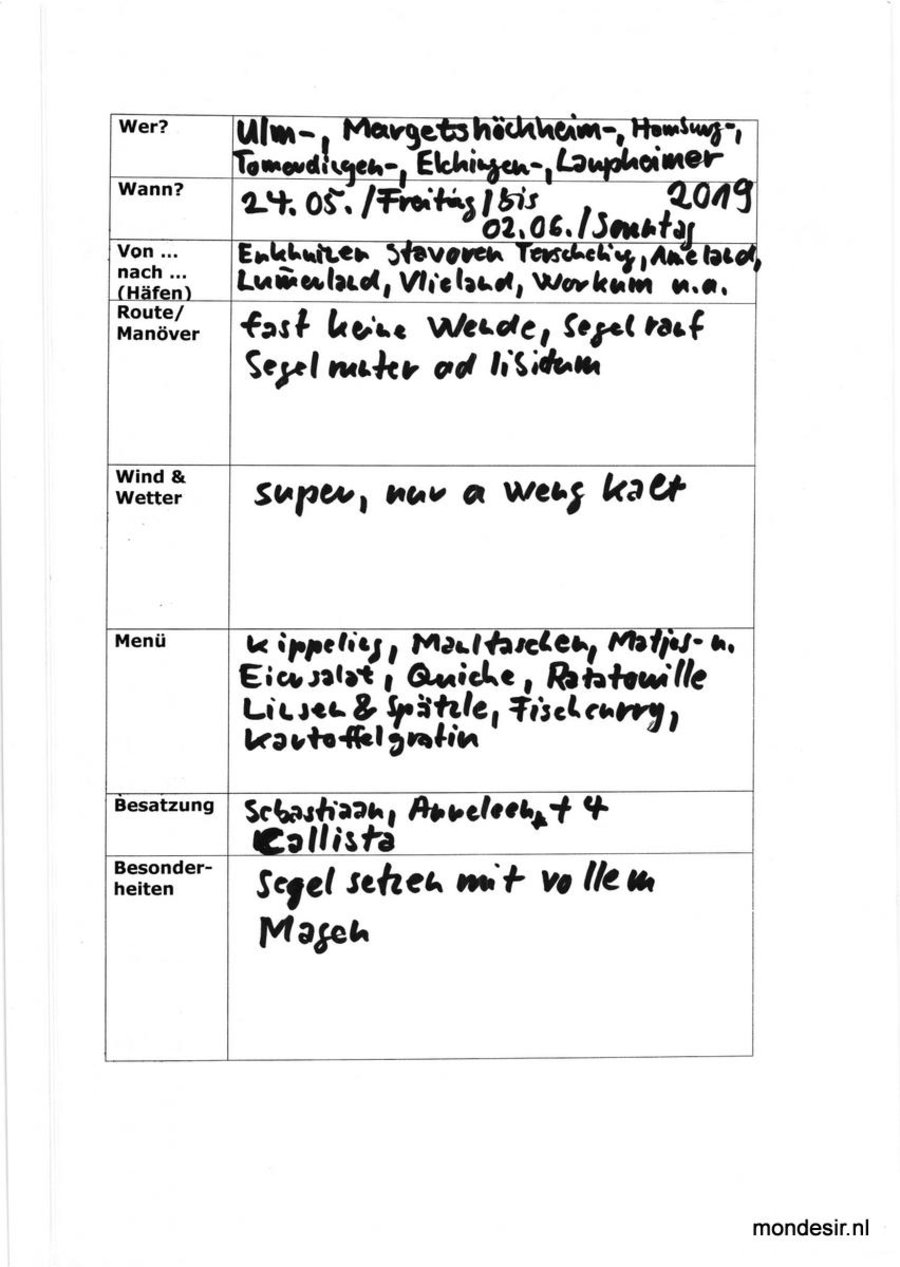 Wer?
Ulm-, Margetshöchheim-, Homburg-,
Tomerdingen-, Elchingen-, Laupheimer
Wann?
24.05./Freitag/bis 2019
02.06./Sonntag
Von ...
nach ...
(Häfen)
Enkhuizen Stavoren Terschellig, Ameland,
Lummerland, Vlieland, Workum u.a.
Route/
Manöver
fast keine Wende, Segel rauf
Segel runter ad libidum
Wind &
Wetter
super, nur a weng kalt
Menü
Kippelies, Maultaschen, Matjes- u.
Eiersalat, Quiche, Ratatouille
Linsen & Spätzle, Fischcurry,
Kartoffelgratin
Besatzung
Sebastiaan, Anneleen, + 4
Callista
Besonder-
heiten
Segel setzen mit vollem
Magen
mondesir.nl